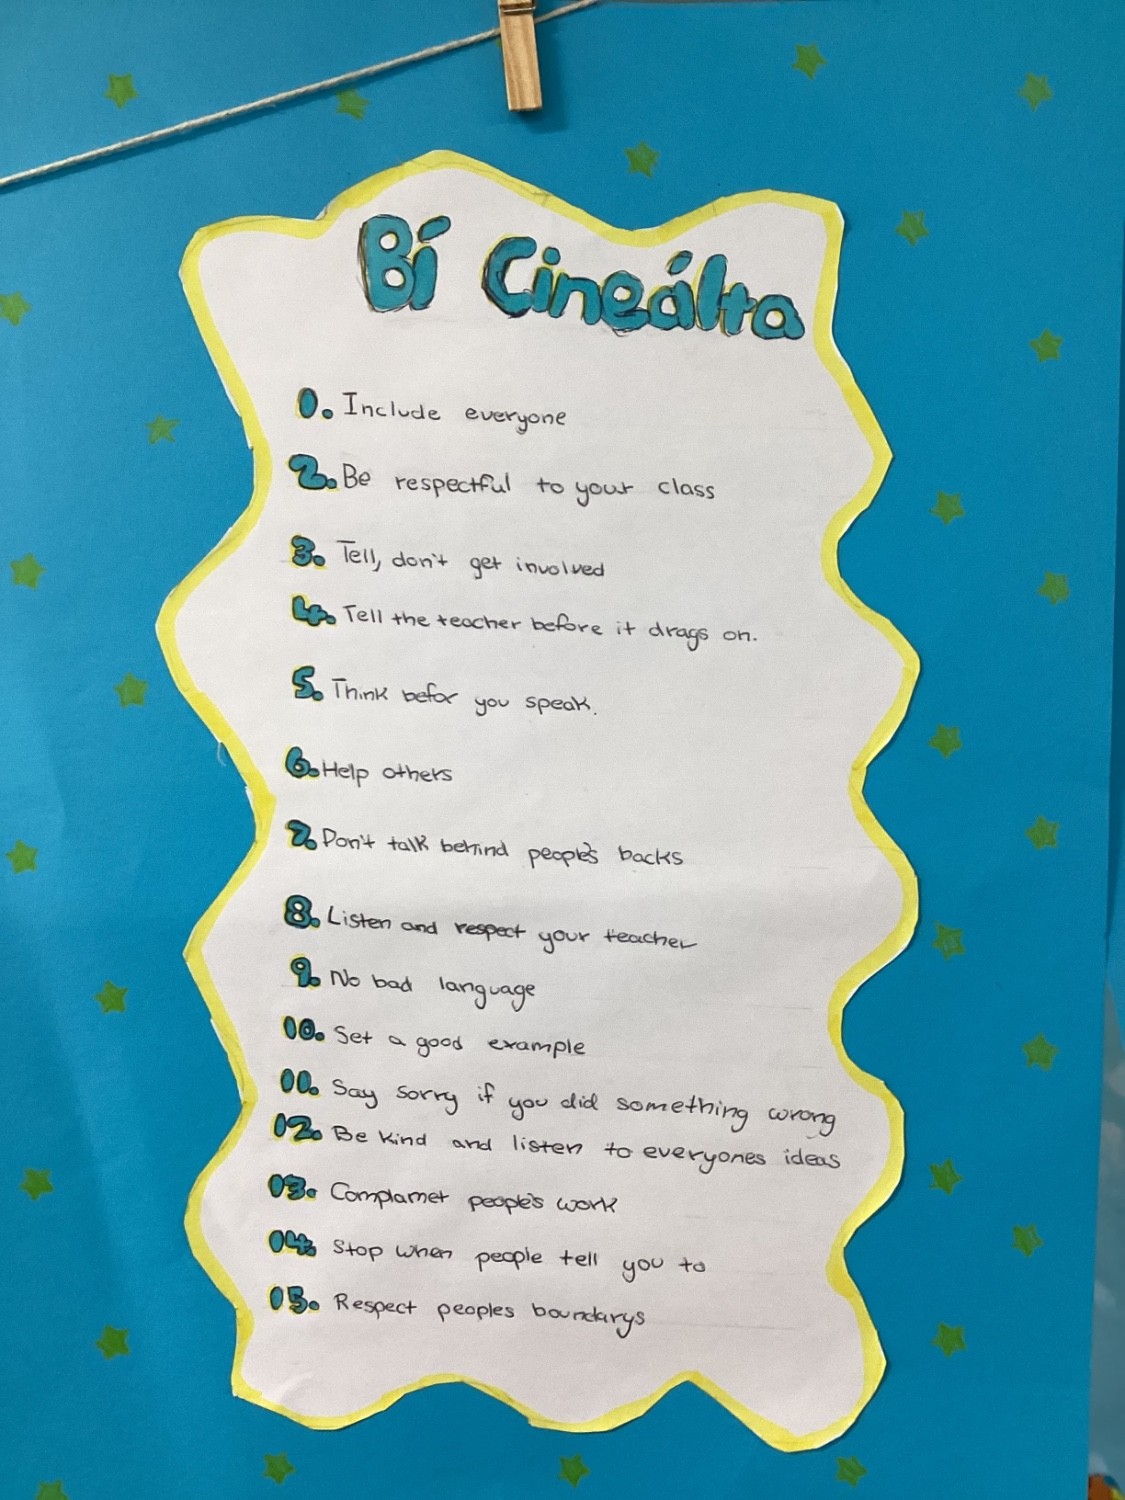 Bí Cineálta
1. Include everyone
2. Be respectful to your class
3. Tell, don't get involved
4. Tell the teacher before it drags on.
5. Think befor you speak.
6. Help others
7. Don't talk behind people's backs
8. Listen and respect your teacher
9. No bad language
10. Set a good example
11. Say sorry if you did something wrong
12. Be kind and listen to everyones ideas
13. Complamet people's work
14. Stop when people tell you to
15. Respect peoples boundarys